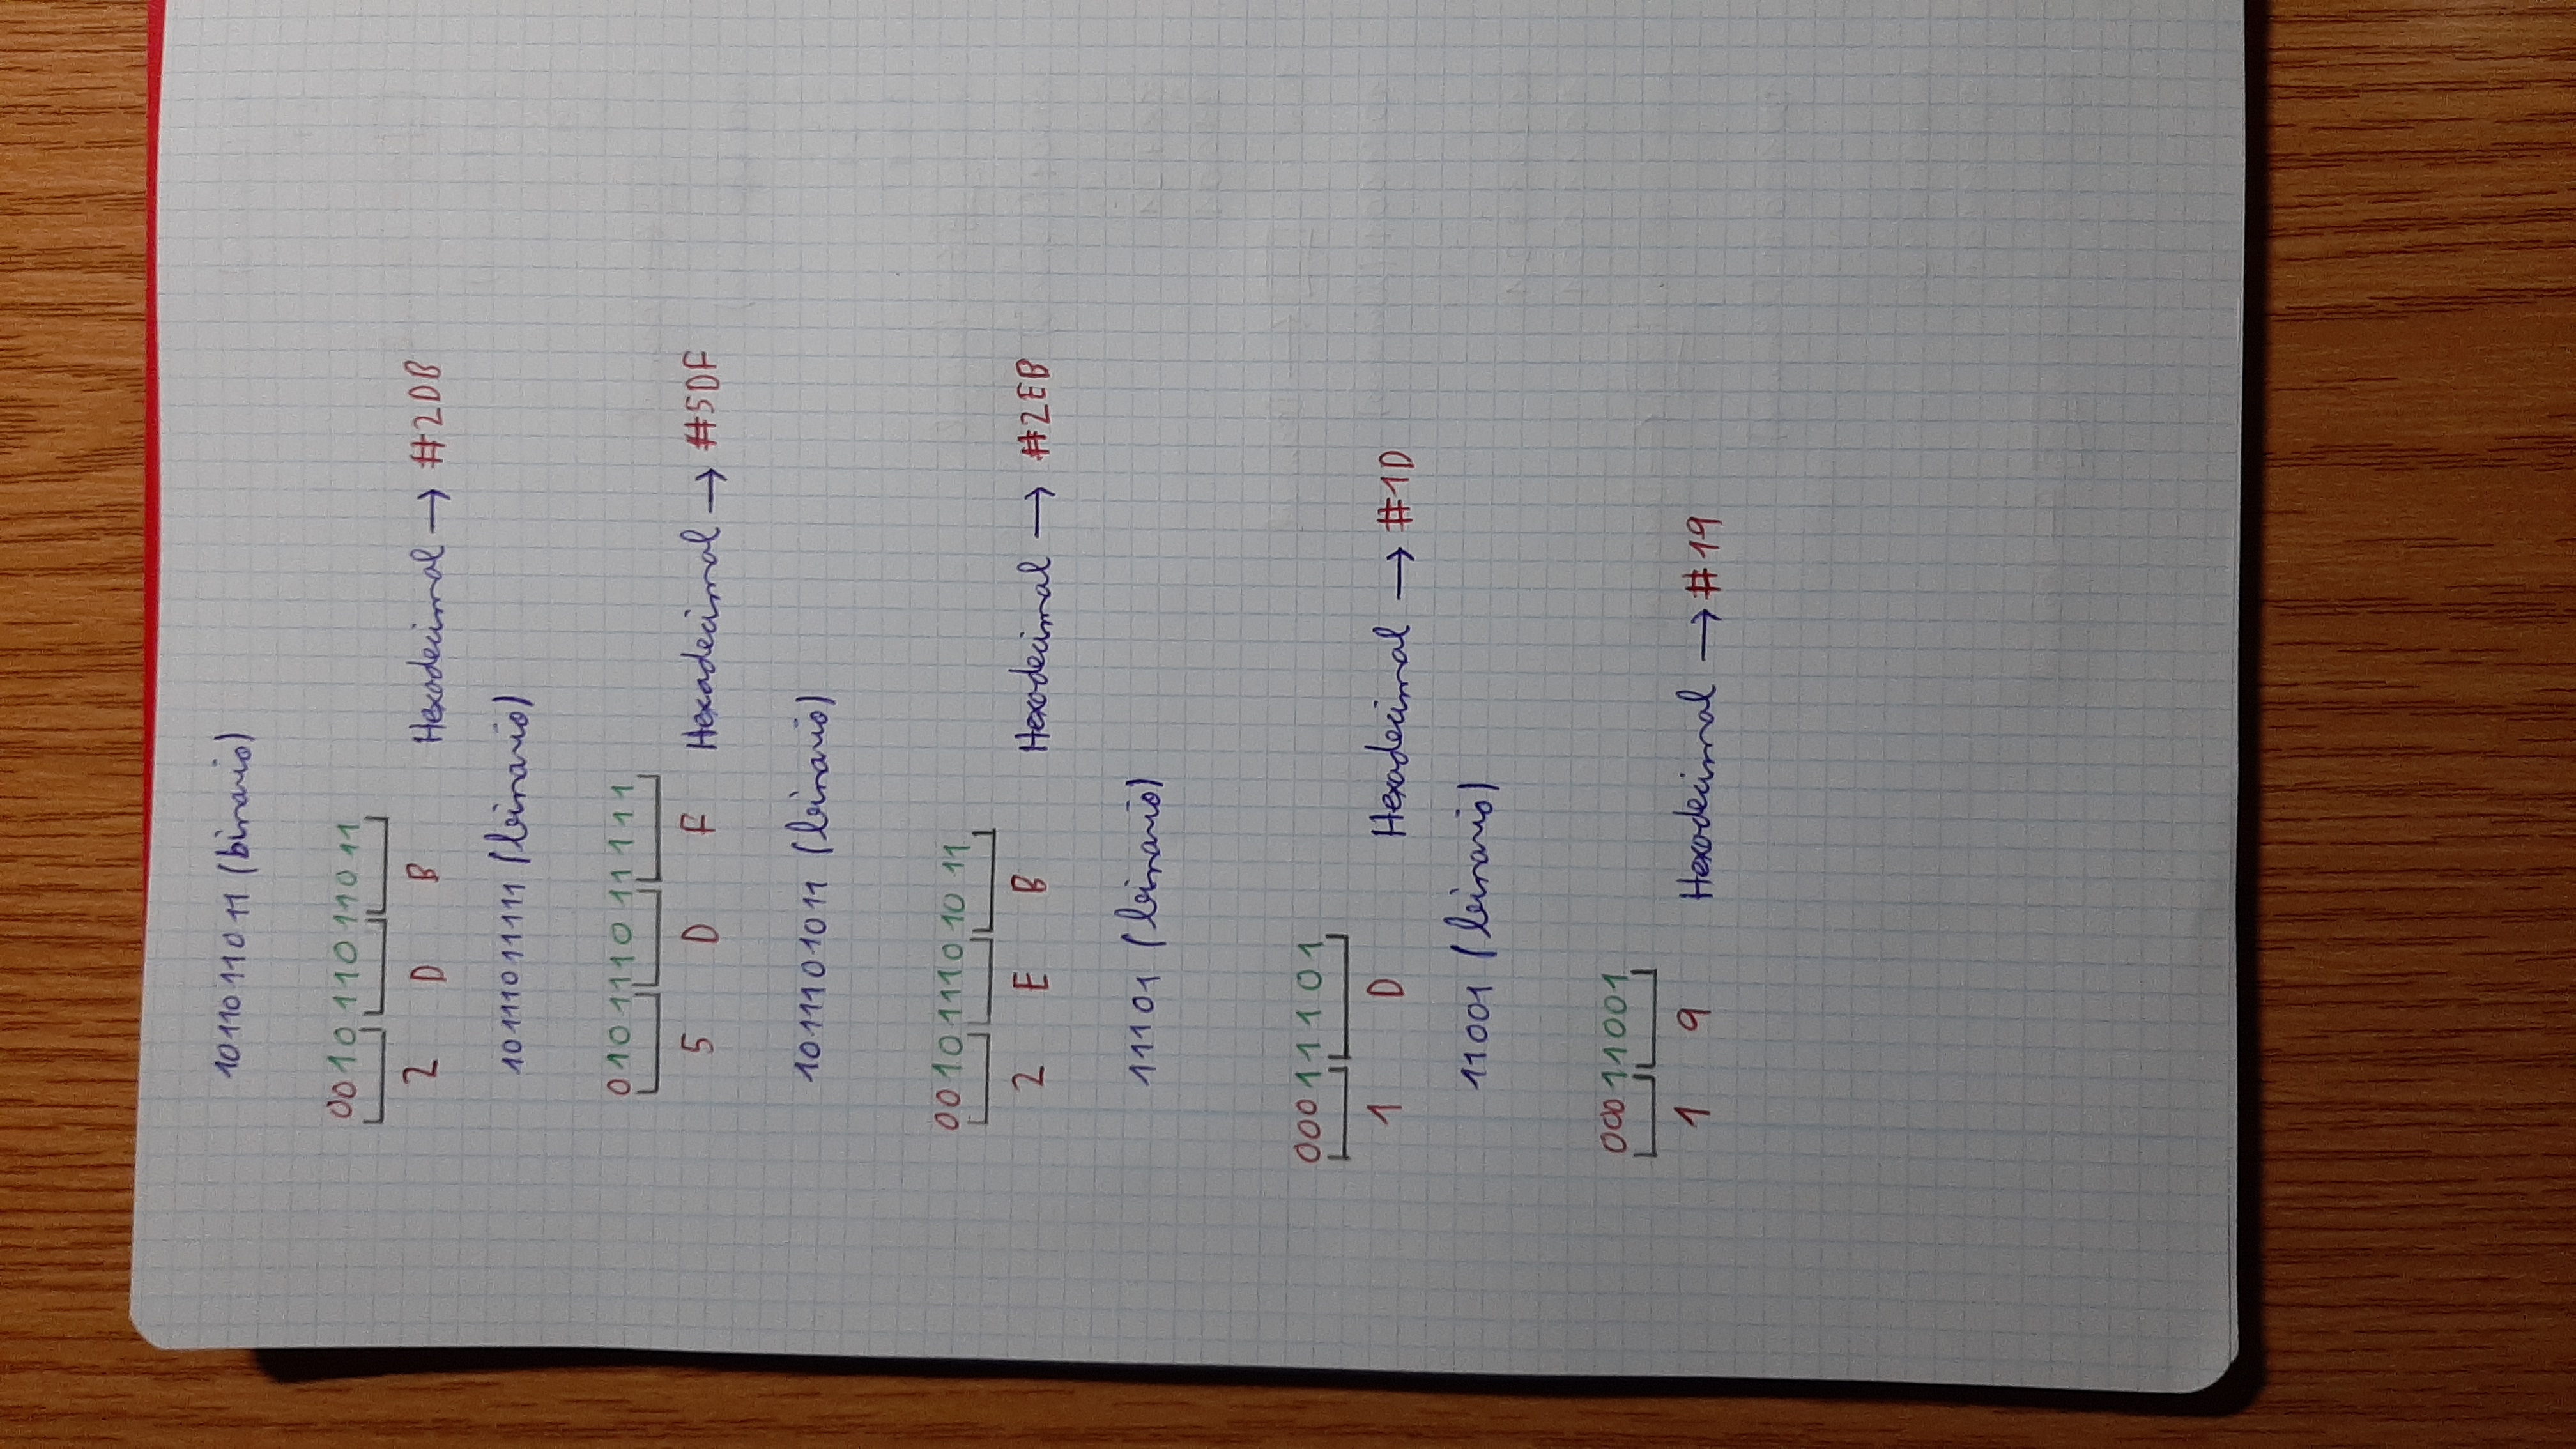 1011011011 (binario)
0010 1101 1011
2 D B Hexadecimal → #2DB
10111011111 (binario)
010111011111
5 D F Hexadecimal → #5DF
1011101011 (binario)
0010 1110 1011
2 E B Hexadecimal → #2EB
11101 (binario)
00011101
1 D Hexadecimal → #1D
11001 (binario)
00011001
1 9 Hexadecimal → #19